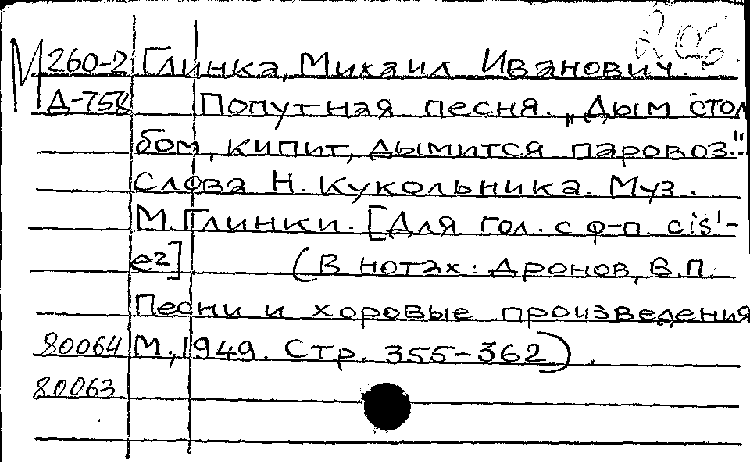 М 260-2 Глинка, Михаил Иванович.
Д-758 Попутная песня. „Дым стол
бом, кипит, дымится паровоз..."
Слова Н. Кукольника. Муз.
М. Глинки. [Для гол. с ф-п. cis¹-
e²] (В нотах: Дронов, В.П.
Песни и хоровые произведения
80064 М., 1949. Стр. 355-362).
80063